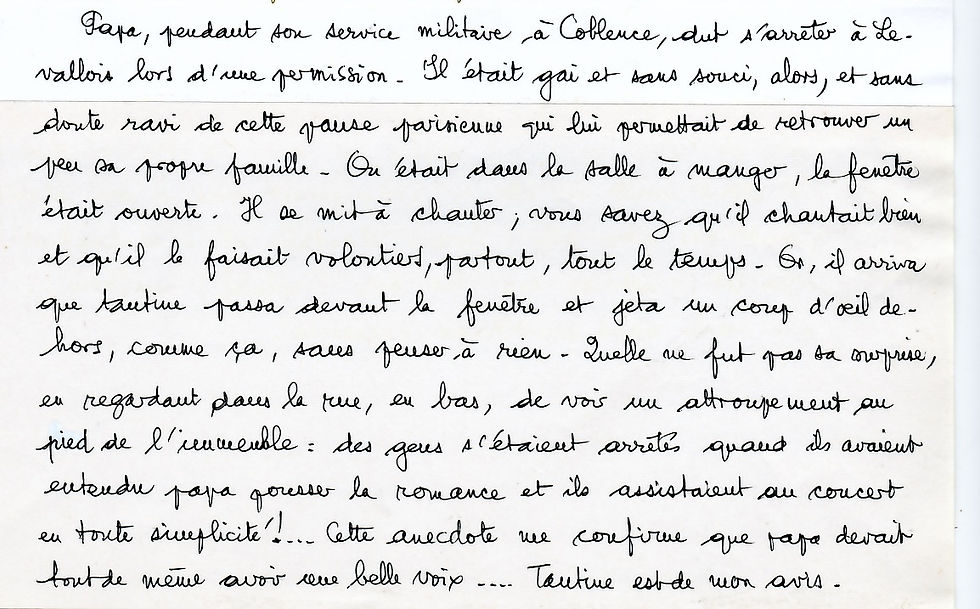 Papa, pendant son service militaire à Coblence, dut s'arrêter à Le-
vallois lors d'une permission. Il était gai et sans souci, alors, et sans
doute ravi de cette pause parisienne qui lui permettait de retrouver un
peu sa propre famille. On était dans la salle à manger, la fenêtre
était ouverte. Il se mit à chanter ; vous savez qu'il chantait bien
et qu'il le faisait volontiers, partout, tout le temps. Or, il arriva
que tantine passa devant la fenêtre et jeta un coup d'œil de-
hors, comme ça, sans penser à rien. Quelle ne fut pas sa surprise,
en regardant dans la rue, en bas, de voir un attroupement au
pied de l'immeuble : des gens s'étaient arrêtés quand ils avaient
entendu papa pousser la romance et ils assistaient au concert
en toute simplicité !... Cette anecdote me confirme que papa devait
tout de même avoir une belle voix .... Tantine est de mon avis.